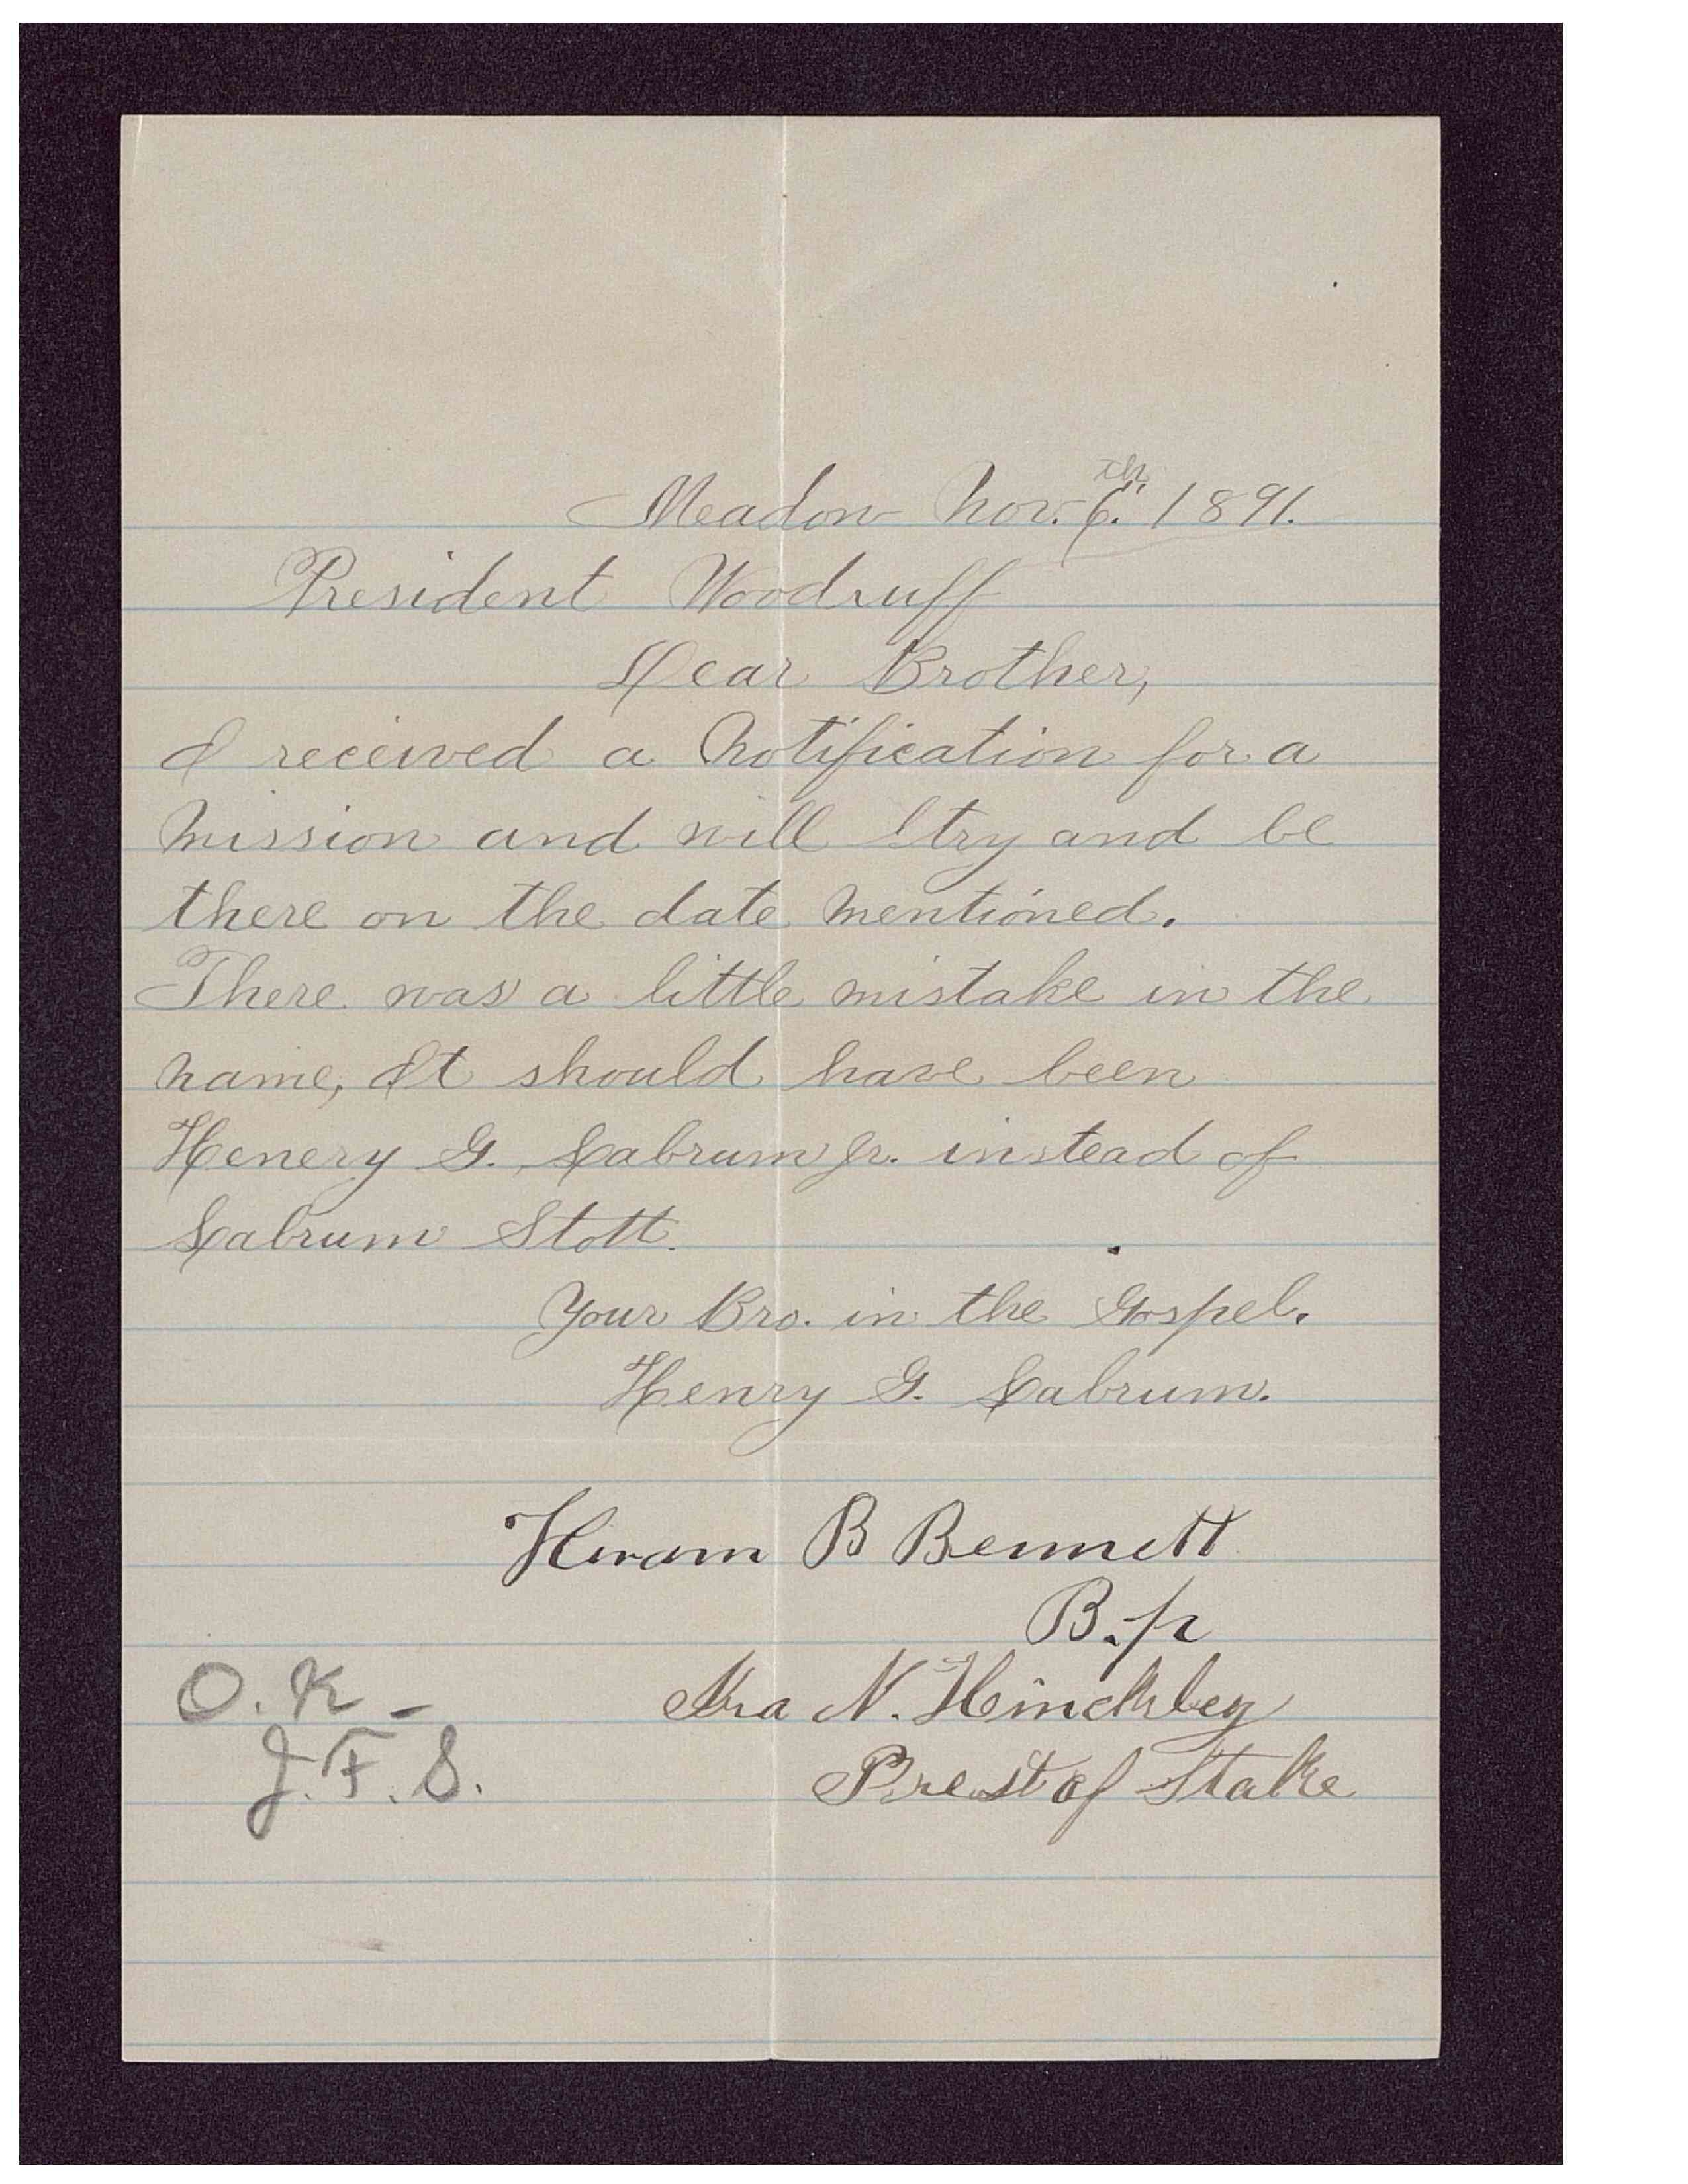 Meadow Nov. 6.th 1891.
President Woodruff
Dear Brother,
I received a Notification for a
Mission and will try and be
there on the date mentioned.
There was a little mistake in the
name, It should have been
Henery G. Labrum Jr. instead of
Labrum Stott.
Your Bro. in the Gospel.
Henry G. Labrum.
Hiram B Bennett
B.p
Ira N. Hinckley
Prest of Stake
O.K –
J.F.S.